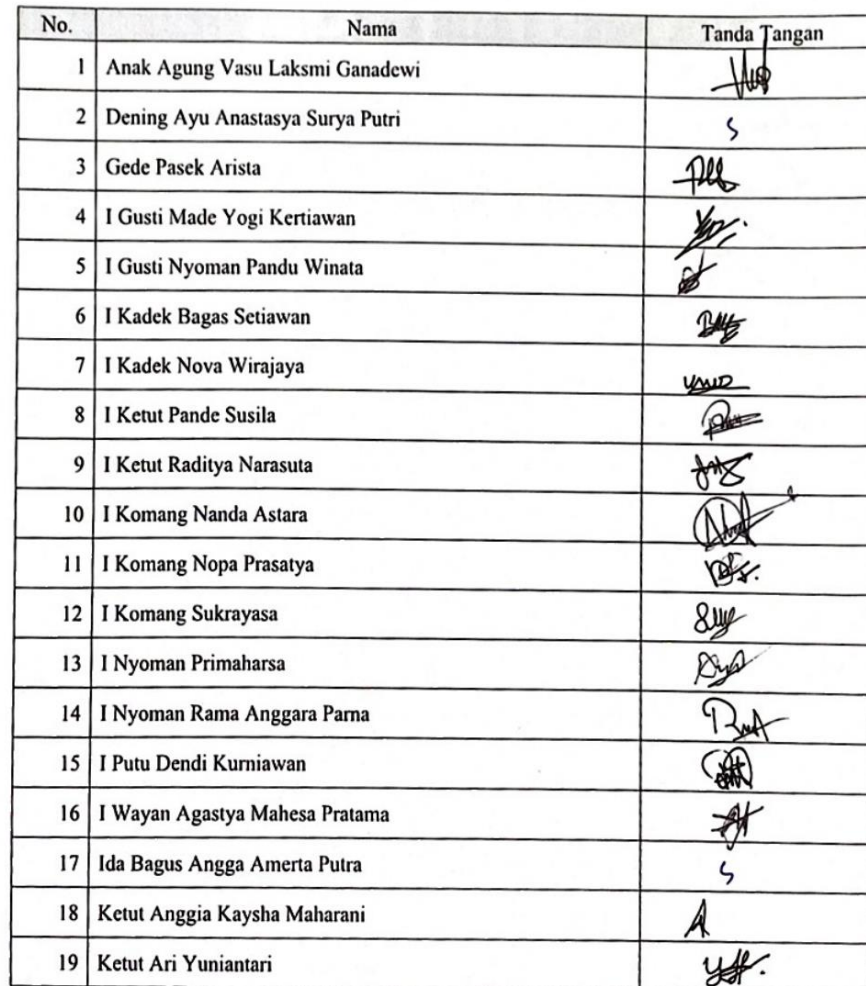 No. Nama Tanda Tangan
1 Anak Agung Vasu Laksmi Ganadewi
2 Dening Ayu Anastasya Surya Putri S
3 Gede Pasek Arista
4 I Gusti Made Yogi Kertiawan
5 I Gusti Nyoman Pandu Winata
6 I Kadek Bagas Setiawan
7 I Kadek Nova Wirajaya
8 I Ketut Pande Susila
9 I Ketut Raditya Narasuta
10 I Komang Nanda Astara
11 I Komang Nopa Prasatya
12 I Komang Sukrayasa
13 I Nyoman Primaharsa
14 I Nyoman Rama Anggara Parna
15 I Putu Dendi Kurniawan
16 I Wayan Agastya Mahesa Pratama
17 Ida Bagus Angga Amerta Putra S
18 Ketut Anggia Kaysha Maharani
19 Ketut Ari Yuniantari